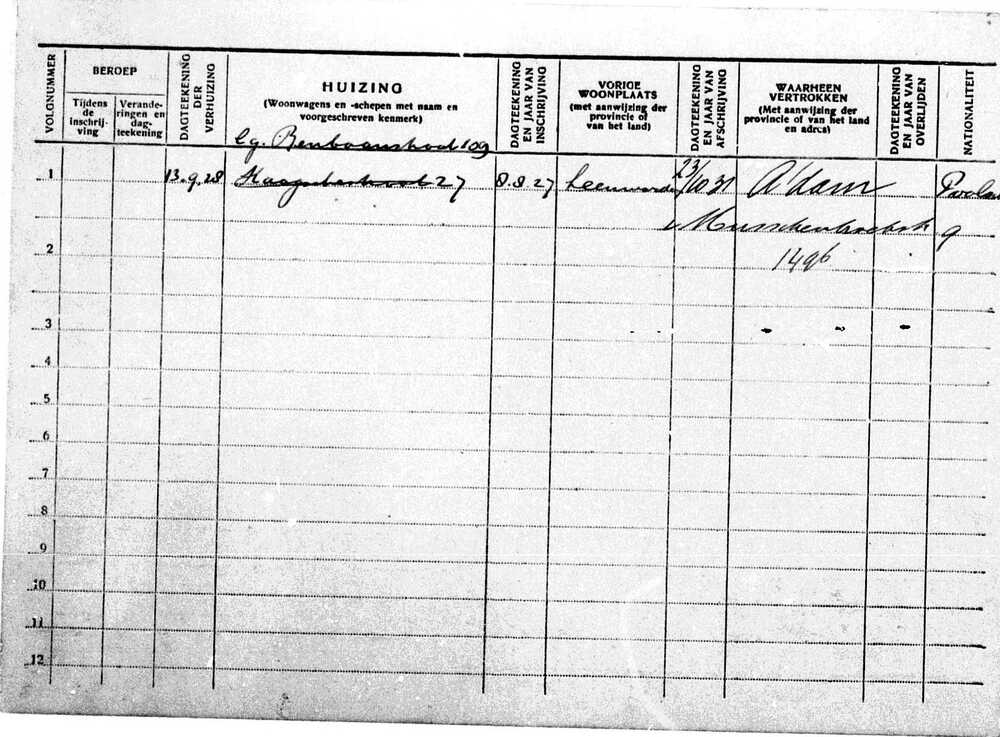 VOLGNUMMER
BEROEP
Tijdens de inschrij- ving
Verande- ringen en dag- teekening
DAGTEEKENING DER VERHUIZING
HUIZING
(Woonwagens en -schepen met naam en
voorgeschreven kenmerk)
DAGTEEKENING EN JAAR VAN INSCHRIJVING
VORIGE WOONPLAATS
(met aanwijzing der provincie of van het land)
DAGTEEKENING EN JAAR VAN AFSCHRIJVING
WAARHEEN VERTROKKEN
(Met aanwijzing der provincie of van het land en adres)
DAGTEEKENING EN JAAR VAN OVERLIJDEN
NATIONALITEIT
109
1 13.9.28 27 8.8.27 Leeuwarden 23/10 31 A'dam
9
2
3
4
5
6
7
8
9
10
11
12